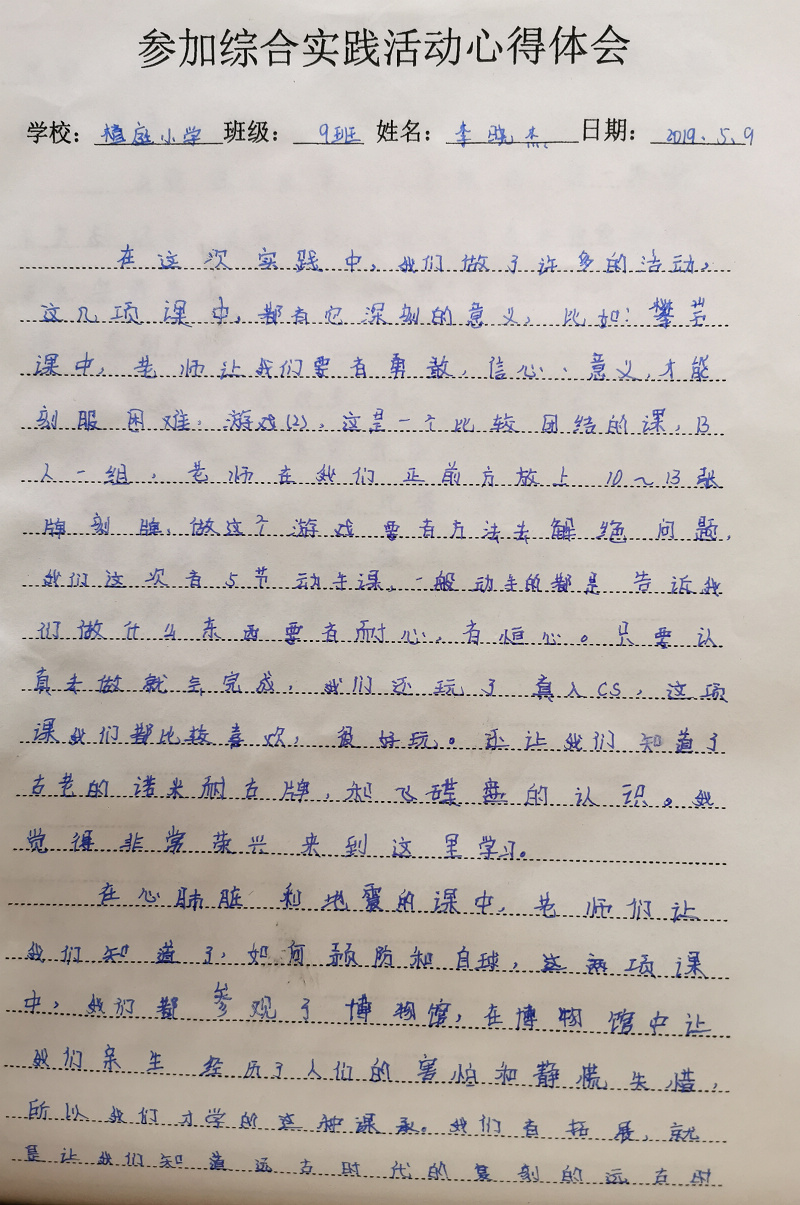 参加综合实践活动心得体会
学校：植庭小学 班级：9班 姓名：李晓杰 日期：2019.5.9
在这次实践中，我们做了许多的活动，
这几项课中，都有它深刻的意义，比如：攀岩
课中，老师让我们要有勇敢，信心、意义，才能
刻服困难，游戏(2)，这是一个比较团结的课，13
人一组，老师在我们正前方放上10～13张
牌刻牌，做这个游戏要有方法去解绝问题，
我们这次有5节动手课，一般动手的都是告诉我
们做什么东西要有耐心，有恒心。只要认
真去做就会完成，我们还玩了真人CS，这项
课我们都比较喜欢，很好玩。还让我们知道了
古老的诺米耐古牌，和飞碟盘的认识。我
觉得非常荣兴来到这里学习。
在心肺脏和地震的课中，老师们让
我们知道了，如何预防和自球，这两项课
中，我们都参观了博物馆，在博物馆中让
我们亲生经历了人们的害怕和静慌失惜，
所以我们才学的这种课承。我们有拓展，就
是让我们知道远古时代的复刻的远古时